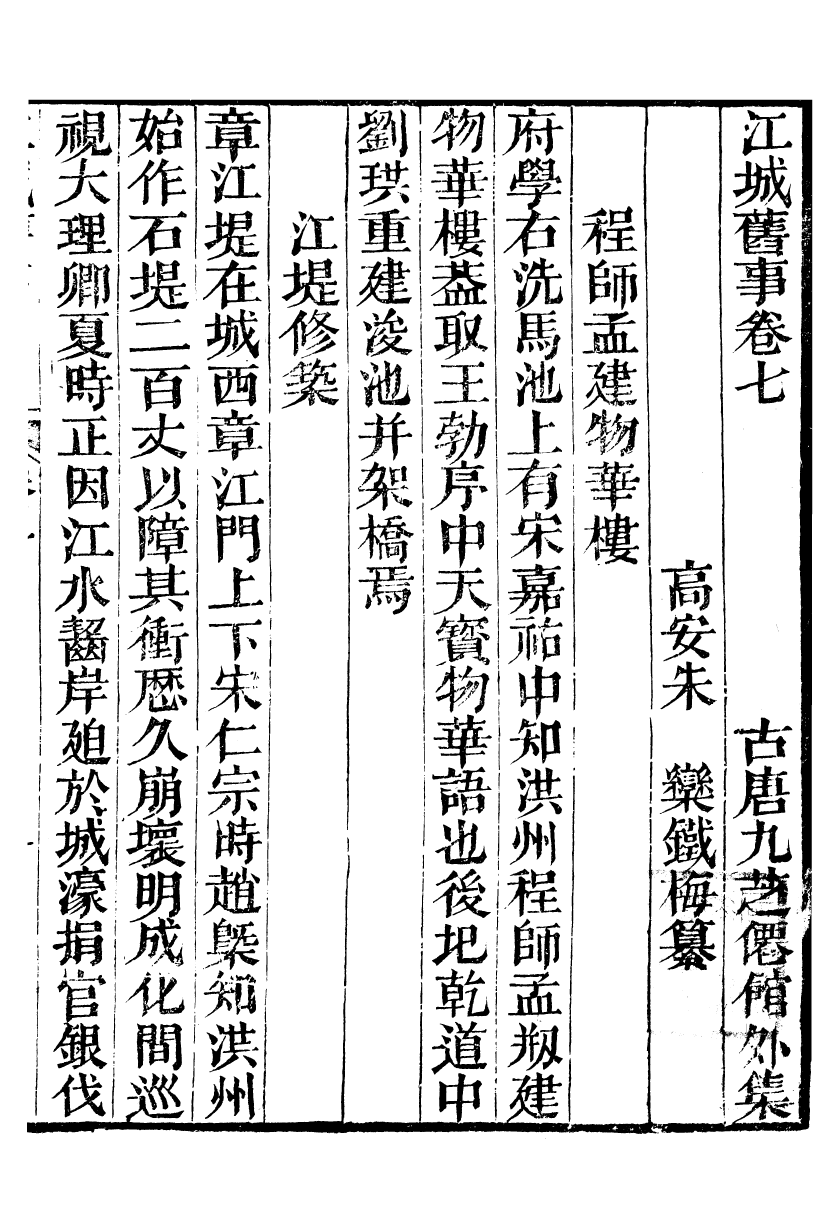 江城舊事卷七　古唐九芝僊館外集
高安朱　欒鐵梅纂
程師孟建物華樓
府學右洗馬池上有宋嘉祐中知洪州程師孟剏建
物華樓葢取王勃序中天寳物華語也後圯乾道中
劉珙重建浚池并架橋焉
江堤修築
章江堤在城西章江門上下宋仁宗時趙槩知洪州
始作石堤二百丈以障其衝歴久崩壞明成化間巡
視大理卿夏時正因江水齧岸廹於城濠捐官銀伐